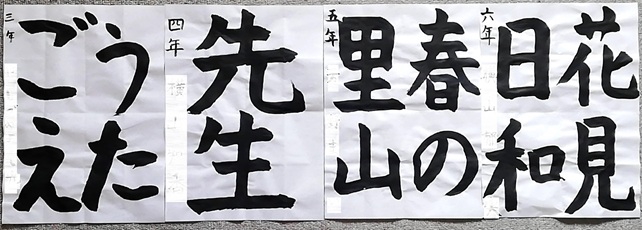 うた
ごえ
三年
先生
四年
春の
里山
五年
花見
日和
六年